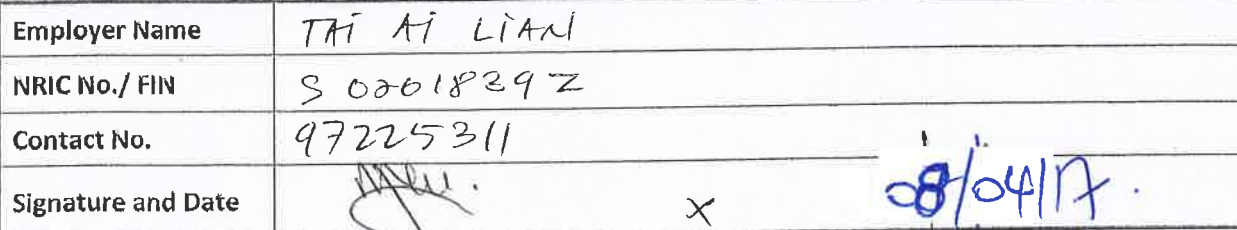 Employer Name TAi Ai LiAN
NRIC No./ FIN S 0201839Z
Contact No. 97225311
Signature and Date x 08/04/17.